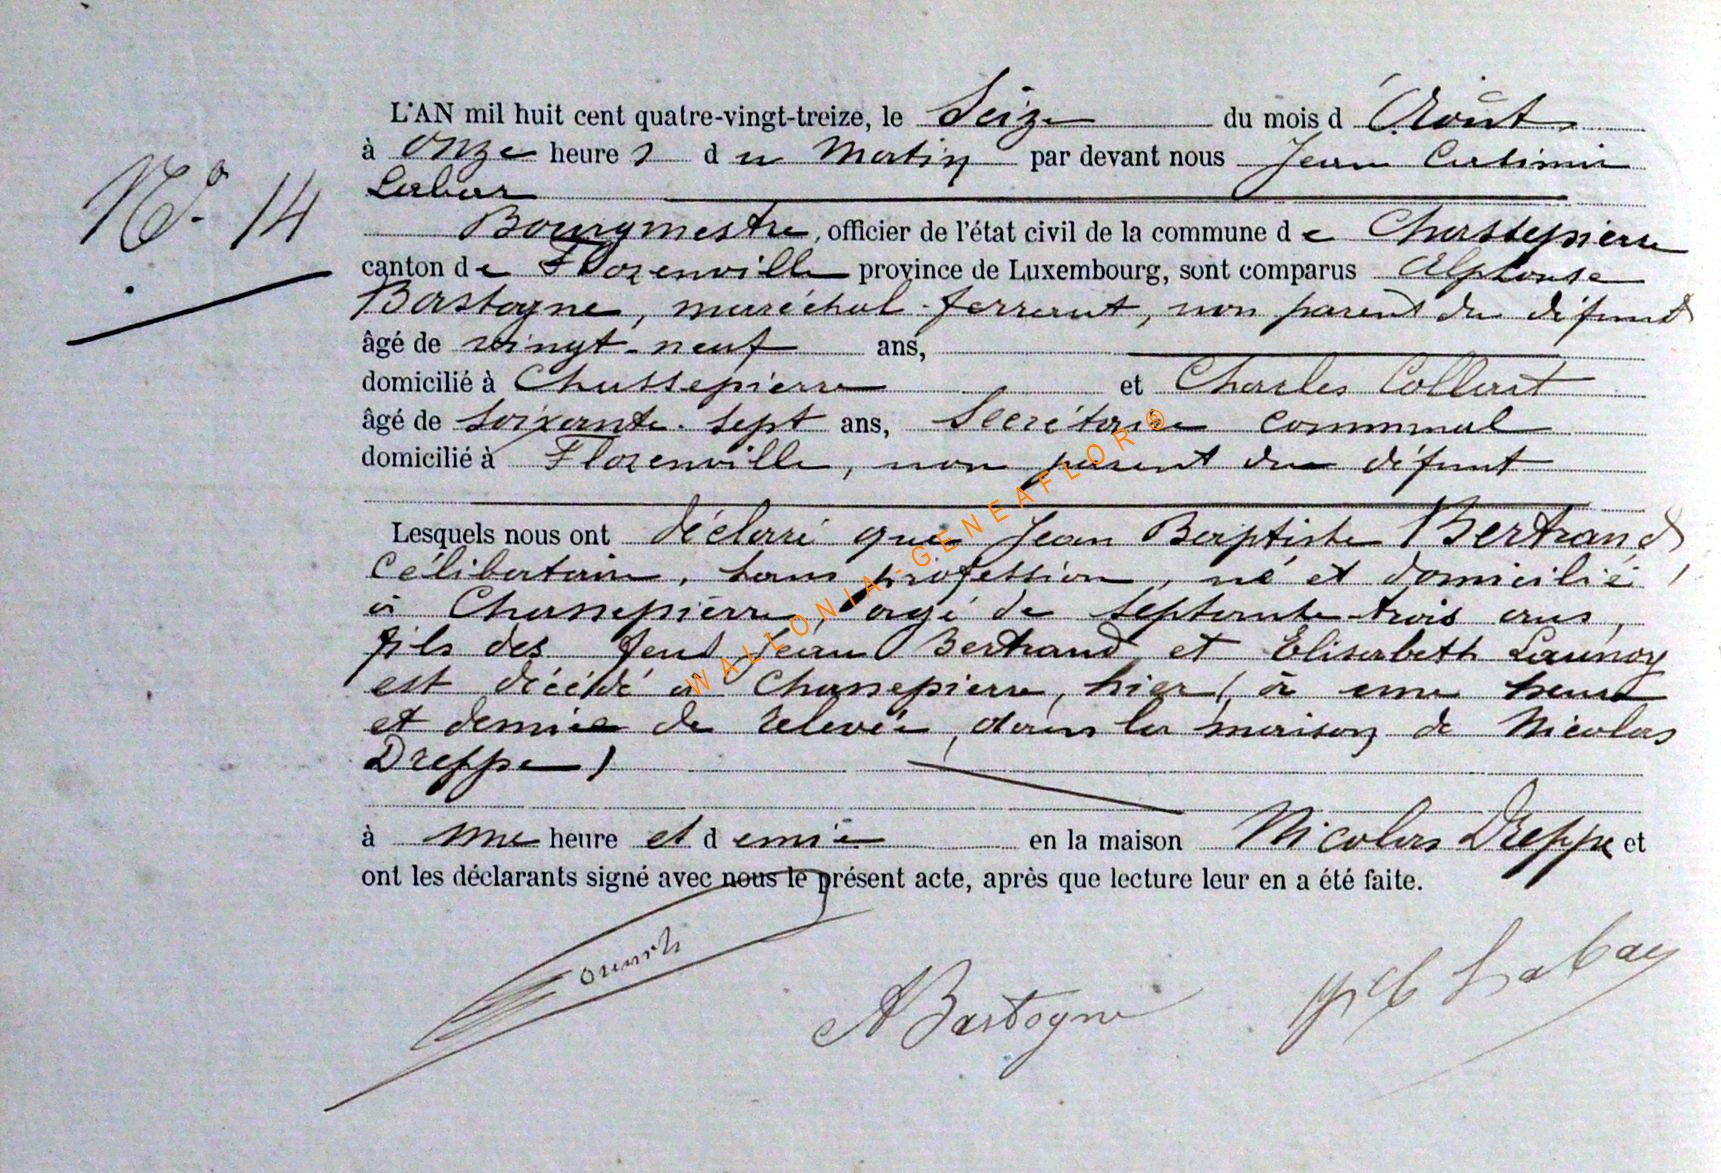 L'AN mil huit cent quatre-vingt-treize, le Seize du mois d'Août
à onze heures du Matin par devant nous Jean Casimir
Labar
N° 14
Bourgmestre, officier de l'état civil de la commune de Chassepierre
canton de Florenville province de Luxembourg, sont comparus Alphonse
Bastogne, maréchal-ferrant, non parent du défunt
âgé de vingt-neuf ans,
domicilié à Chassepierre et Charles Collart
âgé de soixante-sept ans, Secrétaire communal
domicilié à Florenville, non parent du défunt
Lesquels nous ont déclaré que Jean Baptiste Bertrand,
célibataire, sans profession, né et domicilié
à Chassepierre, âgé de septante-trois ans,
fils des feus Jean Bertrand et Elisabeth Launoy
est décédé à Chassepierre, hier, à une heure
et demie de relevée, dans la maison de Nicolas
Dreppe,
à une heure et demie en la maison Nicolas Dreppe et
ont les déclarants signé avec nous le présent acte, après que lecture leur en a été faite.
A Bastogne
JC Labar
WALLONIA-GENEAFLOR®